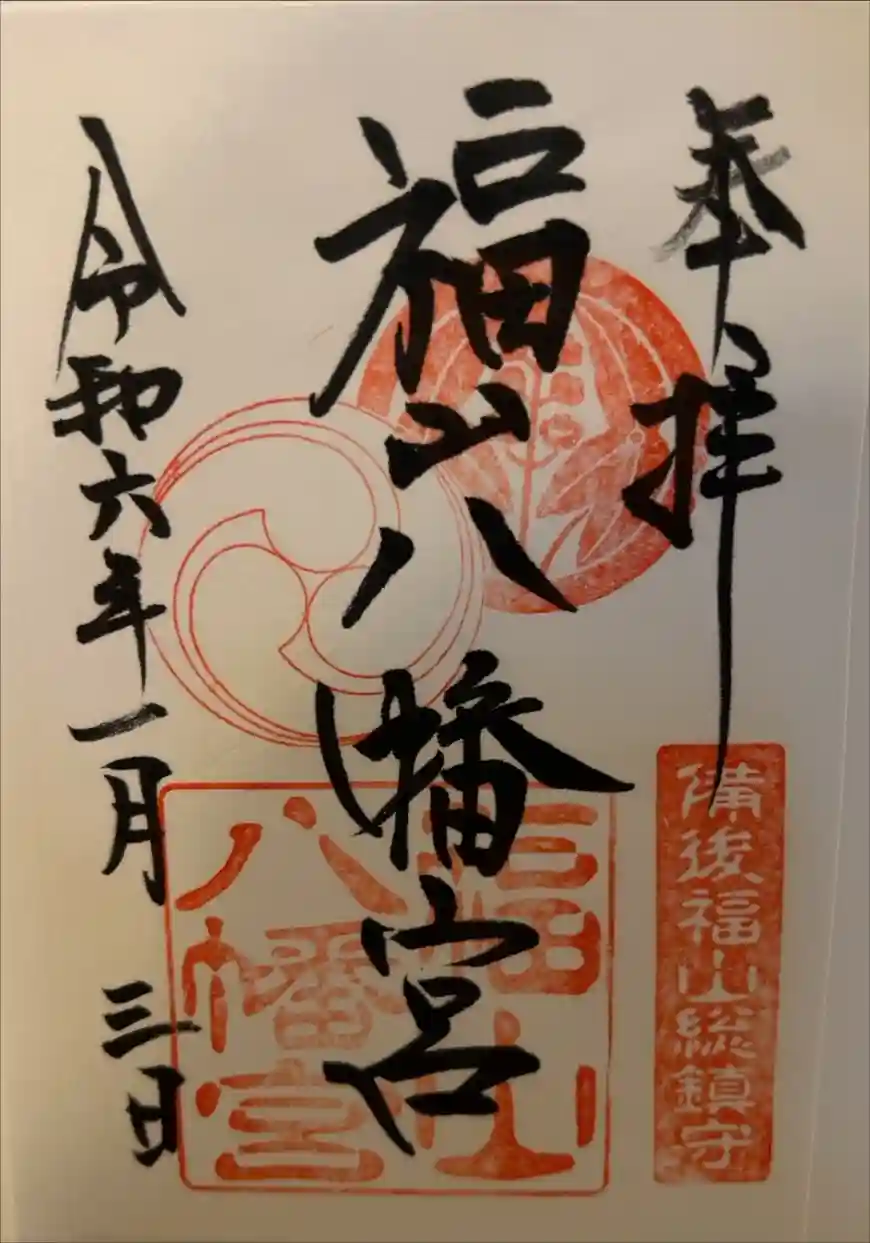 奉拝
備後福山総鎮守
福山八幡宮
福山八幡宮
令和六年一月三日